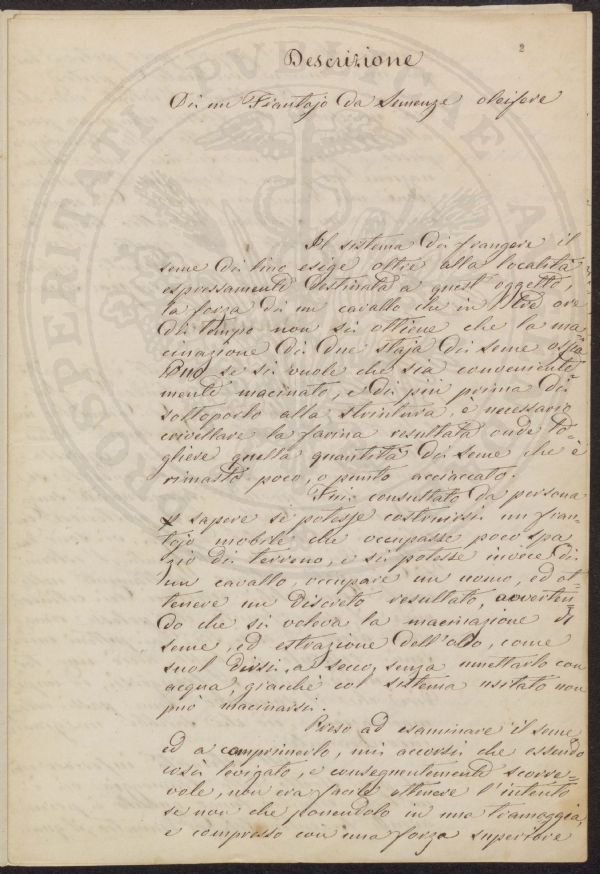 2
Descrizione
Di un Frantojo da Semenze oleifere
Il sistema di frangere il
seme di lino esige oltre alla località
espressamente destinata a quest'oggetto,
la forza di un cavallo che in tre ore
di tempo non si ottiene che la ma-
cinazione di due staja di seme
se si vuole che sia conveniente
mente macinato, e di più prima di
sottoporlo alla strintura, è necessario
crivellare la farina resultata onde to-
gliere quella quantità di seme che è
rimasto poco, o punto acciaccato.
Fui consultato da persona
sapere se potesse costruirsi un fran-
tojo mobile che occupasse poco spa
zio di terreno, e si potesse invece di
un cavallo, occupare un uomo, ed ot-
tenere un discreto resultato, avverten-
do che si voleva la macinazione di
seme, ed estrazione dell'olio, come
suol dirsi, a secco, senza umettarlo con
acqua, giacchè col sistema usitato non
può macinarsi.
Preso ad esaminare il seme
ed a comprimerlo, mi accorsi che essendo
così levigato, e conseguentemente scorre-
vole, non era facile ottenere l'intento
se non che ponendolo in una tramoggia,
e compresso con una forza superiore
PROSPERITATI PUBLICAE